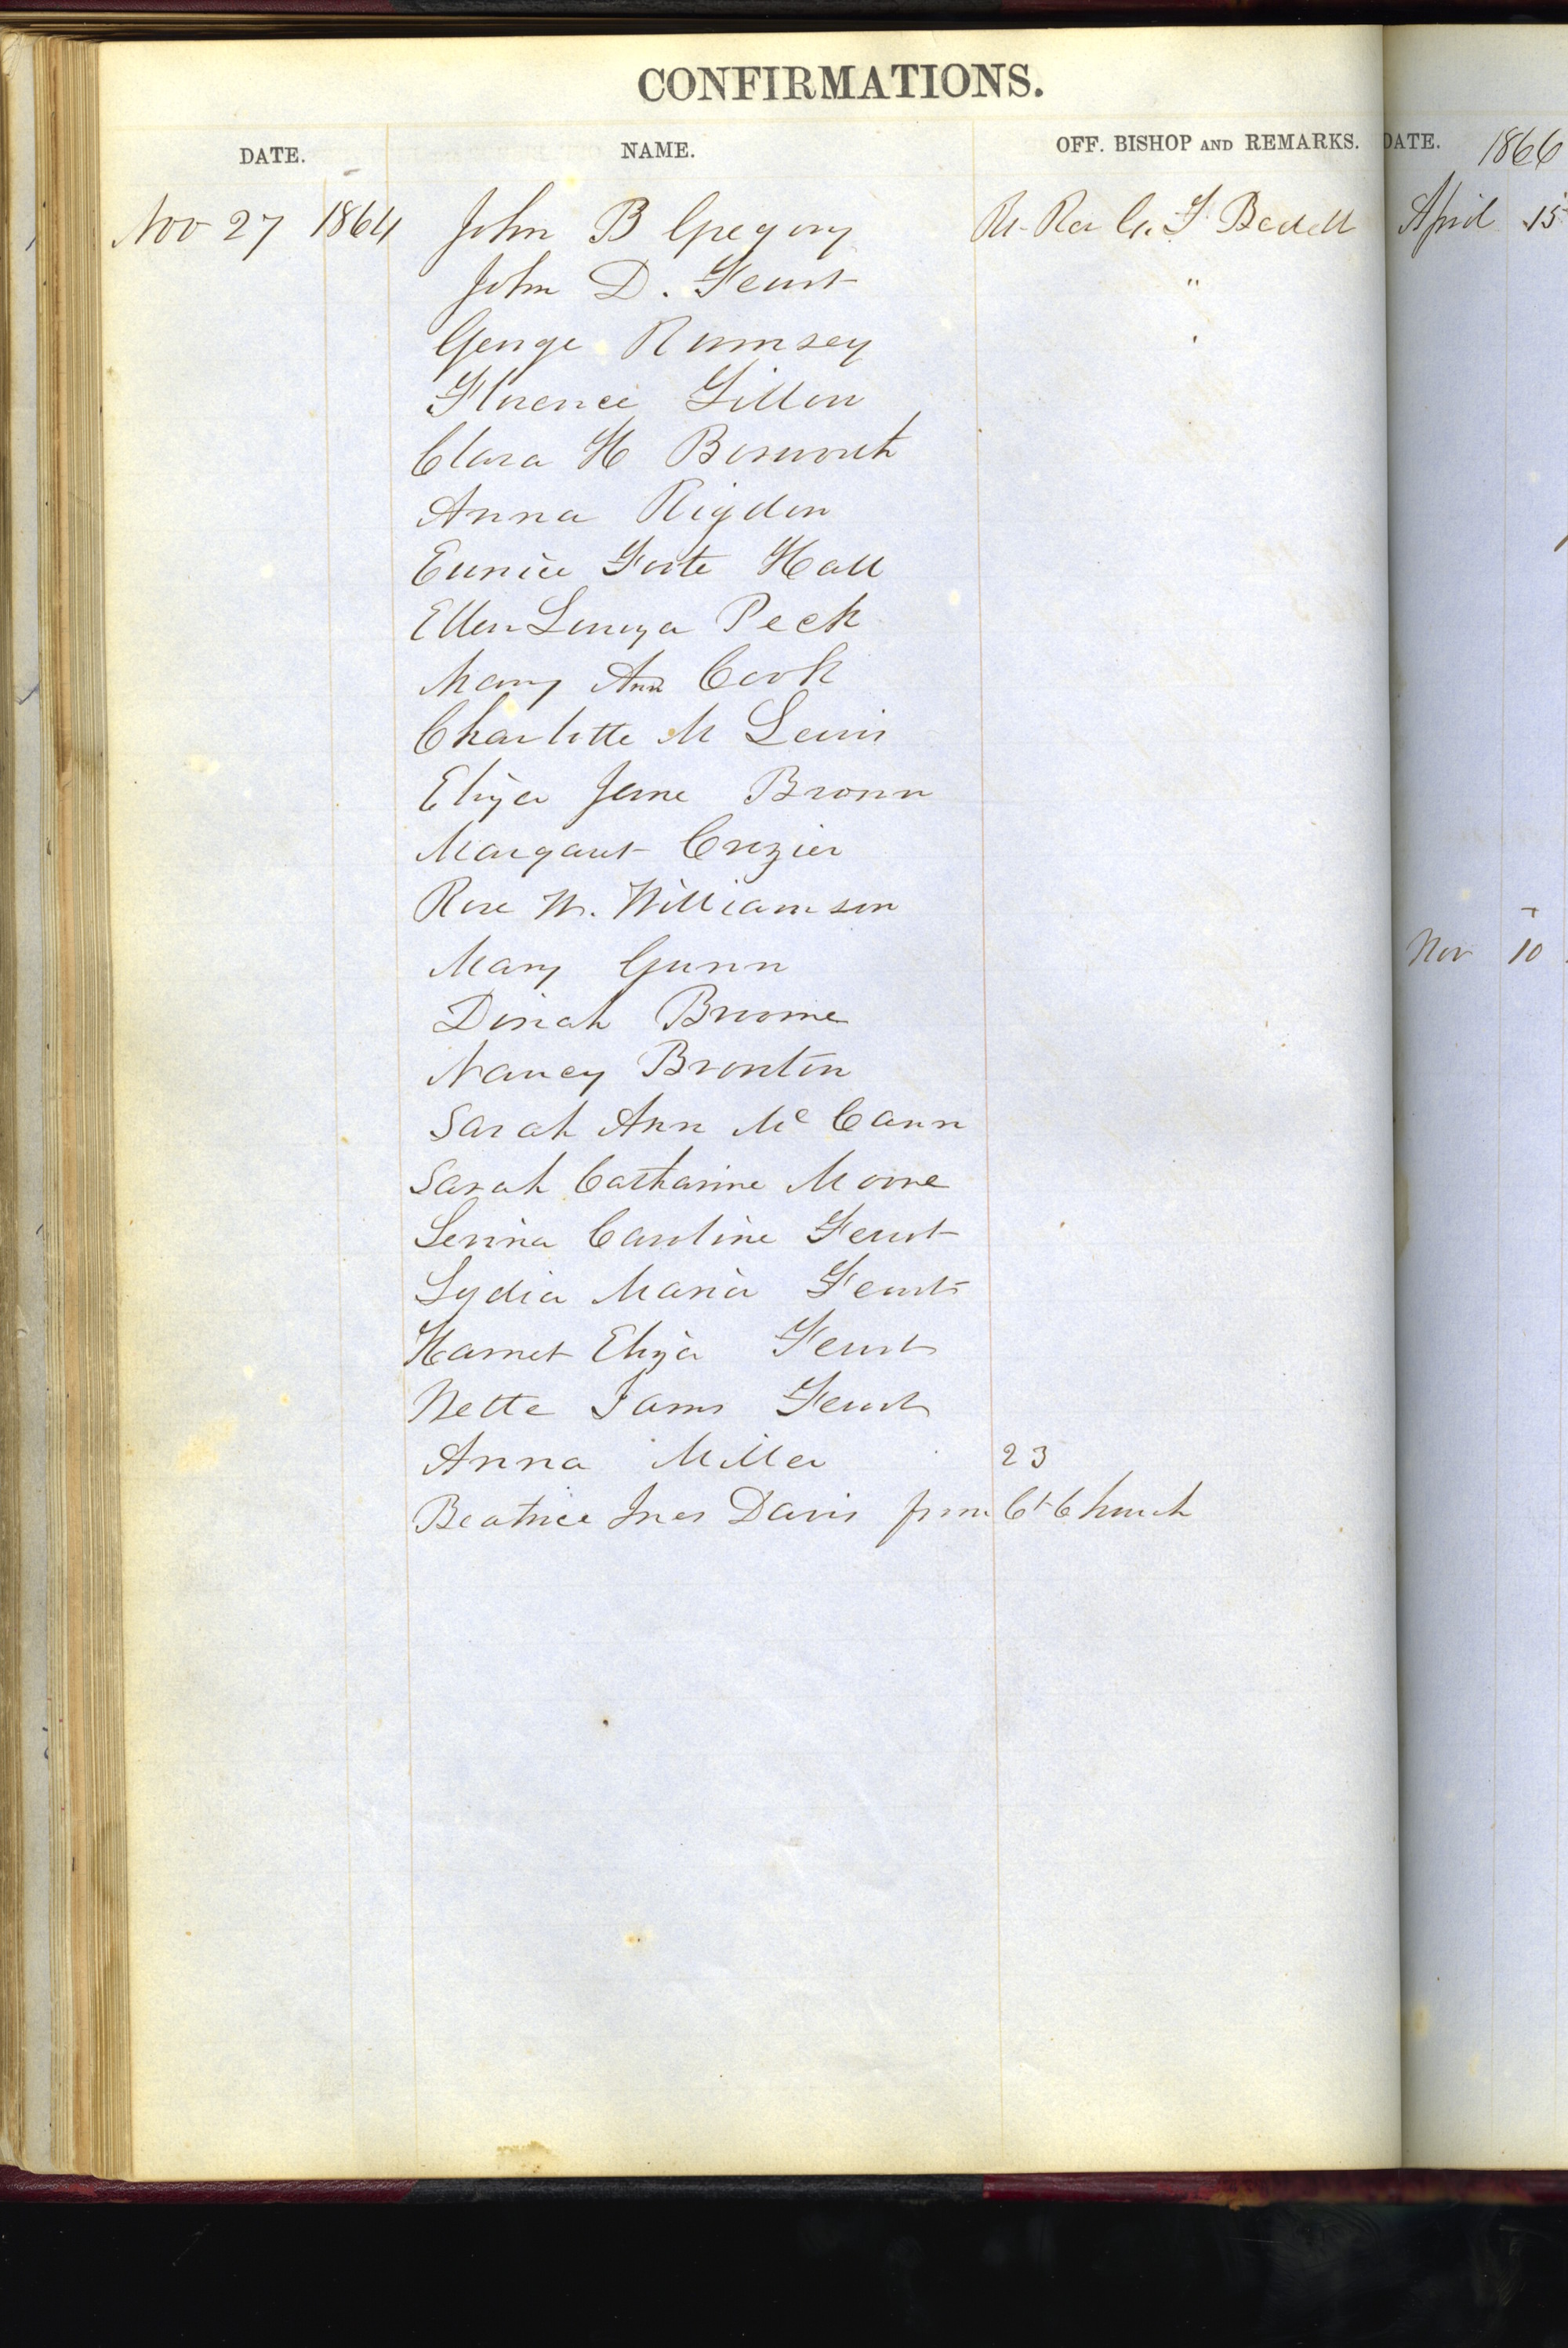 CONFIRMATIONS.
DATE. NAME. OFF. BISHOP AND REMARKS.
Nov 27 1864 John B Gregory Rt. Rev G. T Bedell
John D. Feurt "
George Rumsey
Florence Tillon
Clara H Bosworth
Anna Rigdon
Eunice Foote Hall
Ellen Peck
Mary Ann Cook
Charlotte M Lewis
Eliza Jane Brown
Margaret Crozier
Rose W. Williamson
Mary Gunn
Dinah Broome
Nancy Bronton
Sarah Ann Mc Cann
Sarah Catharine Moore
Caroline Feurt
Lydia Maria Feurt
Harriet Eliza Feurt
Nette Feurt
Anna Miller 23
Beatrice Ines Davis from Ct Church
DATE. 1866
April 15
Nov 10